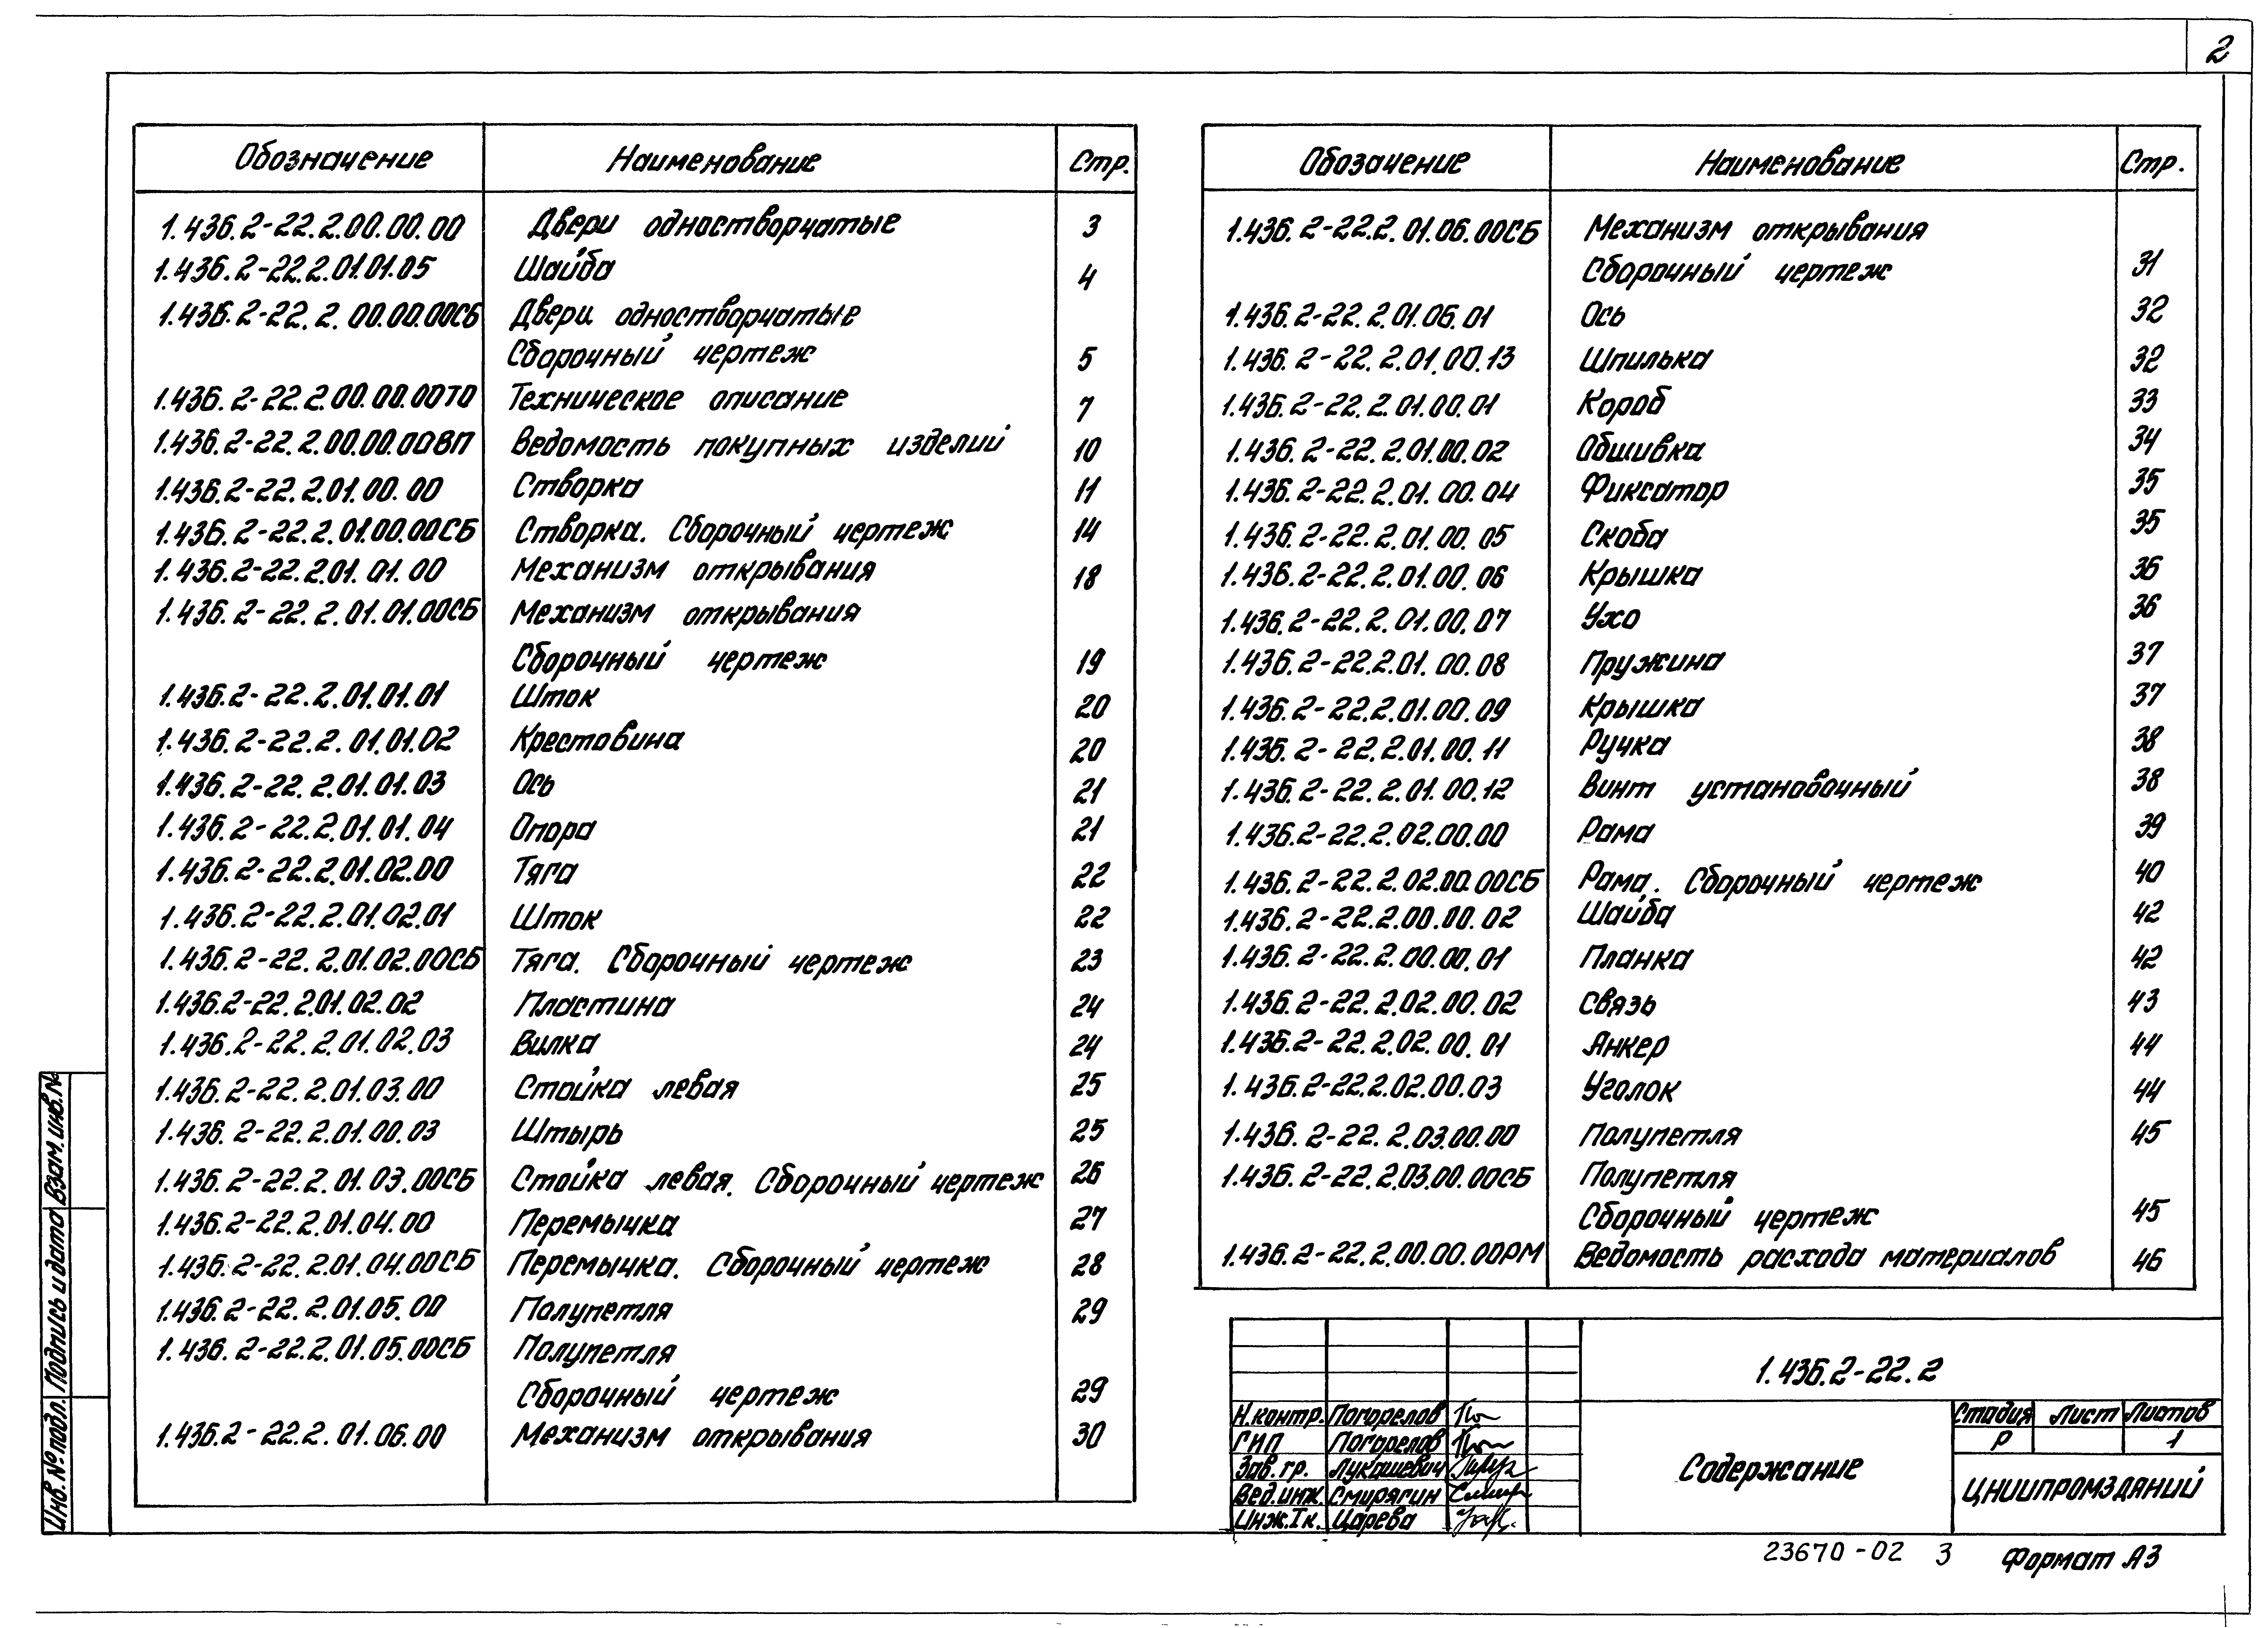 2
Обозначение Наименование Стр.
1.436.2-22.2.00.00.00 Двери одностворчатые 3
1.436.2-22.2.01.01.05 Шайба 4
1.436.2-22.2.00.00.00СБ Двери одностворчатые
Сборочный чертеж 5
1.436.2-22.2.00.00.00ТО Техническое описание 7
1.436.2-22.2.00.00.00ВП Ведомость покупных изделий 10
1.436.2-22.2.01.00.00 Створка 11
1.436.2-22.2.01.00.00СБ Створка. Сборочный чертеж 14
1.436.2-22.2.01.01.00 Механизм открывания 18
1.436.2-22.2.01.01.00СБ Механизм открывания
Сборочный чертеж 19
1.436.2-22.2.01.01.01 Шток 20
1.436.2-22.2.01.01.02 Крестовина 20
1.436.2-22.2.01.01.03 Ось 21
1.436.2-22.2.01.01.04 Опора 21
1.436.2-22.2.01.02.00 Тяга 22
1.436.2-22.2.01.02.01 Шток 22
1.436.2-22.2.01.02.00СБ Тяга. Сборочный чертеж 23
1.436.2-22.2.01.02.02 Пластина 24
1.436.2-22.2.01.02.03 Вилка 24
1.436.2-22.2.01.03.00 Стойка левая 25
1.436.2-22.2.01.00.03 Штырь 25
1.436.2-22.2.01.03.00СБ Стойка левая. Сборочный чертеж 26
1.436.2-22.2.01.04.00 Перемычка 27
1.436.2-22.2.01.04.00СБ Перемычка. Сборочный чертеж 28
1.436.2-22.2.01.05.00 Полупетля 29
1.436.2-22.2.01.05.00СБ Полупетля
Сборочный чертеж 29
1.436.2-22.2.01.06.00 Механизм открывания 30
Обозачение Наименование Стр.
1.436.2-22.2.01.06.00СБ Механизм открывания
Сборочный чертеж 31
1.436.2-22.2.01.06.01 Ось 32
1.436.2-22.2.01.00.13 Шпилька 32
1.436.2-22.2.01.00.01 Короб 33
1.436.2-22.2.01.00.02 Обшивка 34
1.436.2-22.2.01.00.04 Фиксатор 35
1.436.2-22.2.01.00.05 Скоба 35
1.436.2-22.2.01.00.06 Крышка 36
1.436.2-22.2.01.00.07 Ухо 36
1.436.2-22.2.01.00.08 Пружина 37
1.436.2-22.2.01.00.09 Крышка 37
1.436.2-22.2.01.00.11 Ручка 38
1.436.2-22.2.01.00.12 Винт установочный 38
1.436.2-22.2.02.00.00 Рама 39
1.436.2-22.2.02.00.00СБ Рама. Сборочный чертеж 40
1.436.2-22.2.00.00.02 Шайба 42
1.436.2-22.2.00.00.01 Планка 42
1.436.2-22.2.02.00.02 Связь 43
1.436.2-22.2.02.00.01 Анкер 44
1.436.2-22.2.02.00.03 Уголок 44
1.436.2-22.2.03.00.00 Полупетля 45
1.436.2-22.2.03.00.00СБ Полупетля
Сборочный чертеж 45
1.436.2-22.2.00.00.00РМ Ведомость расхода материалов 46
Взам. инв. №
Подпись и дата
Инв. № подл.
1.436.2-22.2
Н.контр. Погорелов
ГИП Погорелов
Зав. гр. Лукашевич
Вед.инж. Смирягин
Инж. I к. Царева
Содержание
Стадия Лист Листов
Р 1
ЦНИИПРОМЗДАНИЙ
23670-02 3 Формат А3